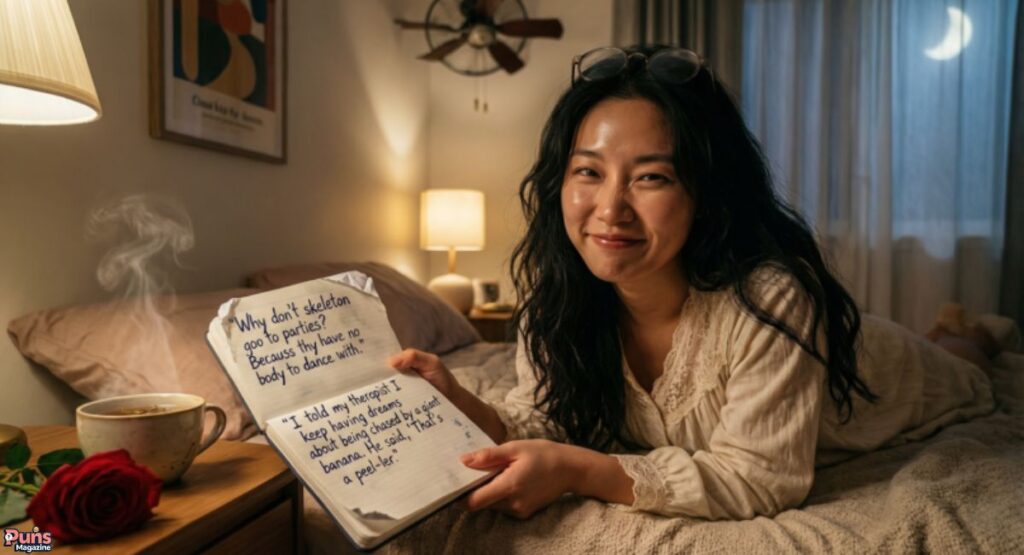 "Why don't skeleton
goo to parties?
Becauss thy have no
body to dance with."
"I told my therapist I
keep having dreams
about being chased by a giant
banana. He said, 'That's
a peel-ler."
Puns
Magazine